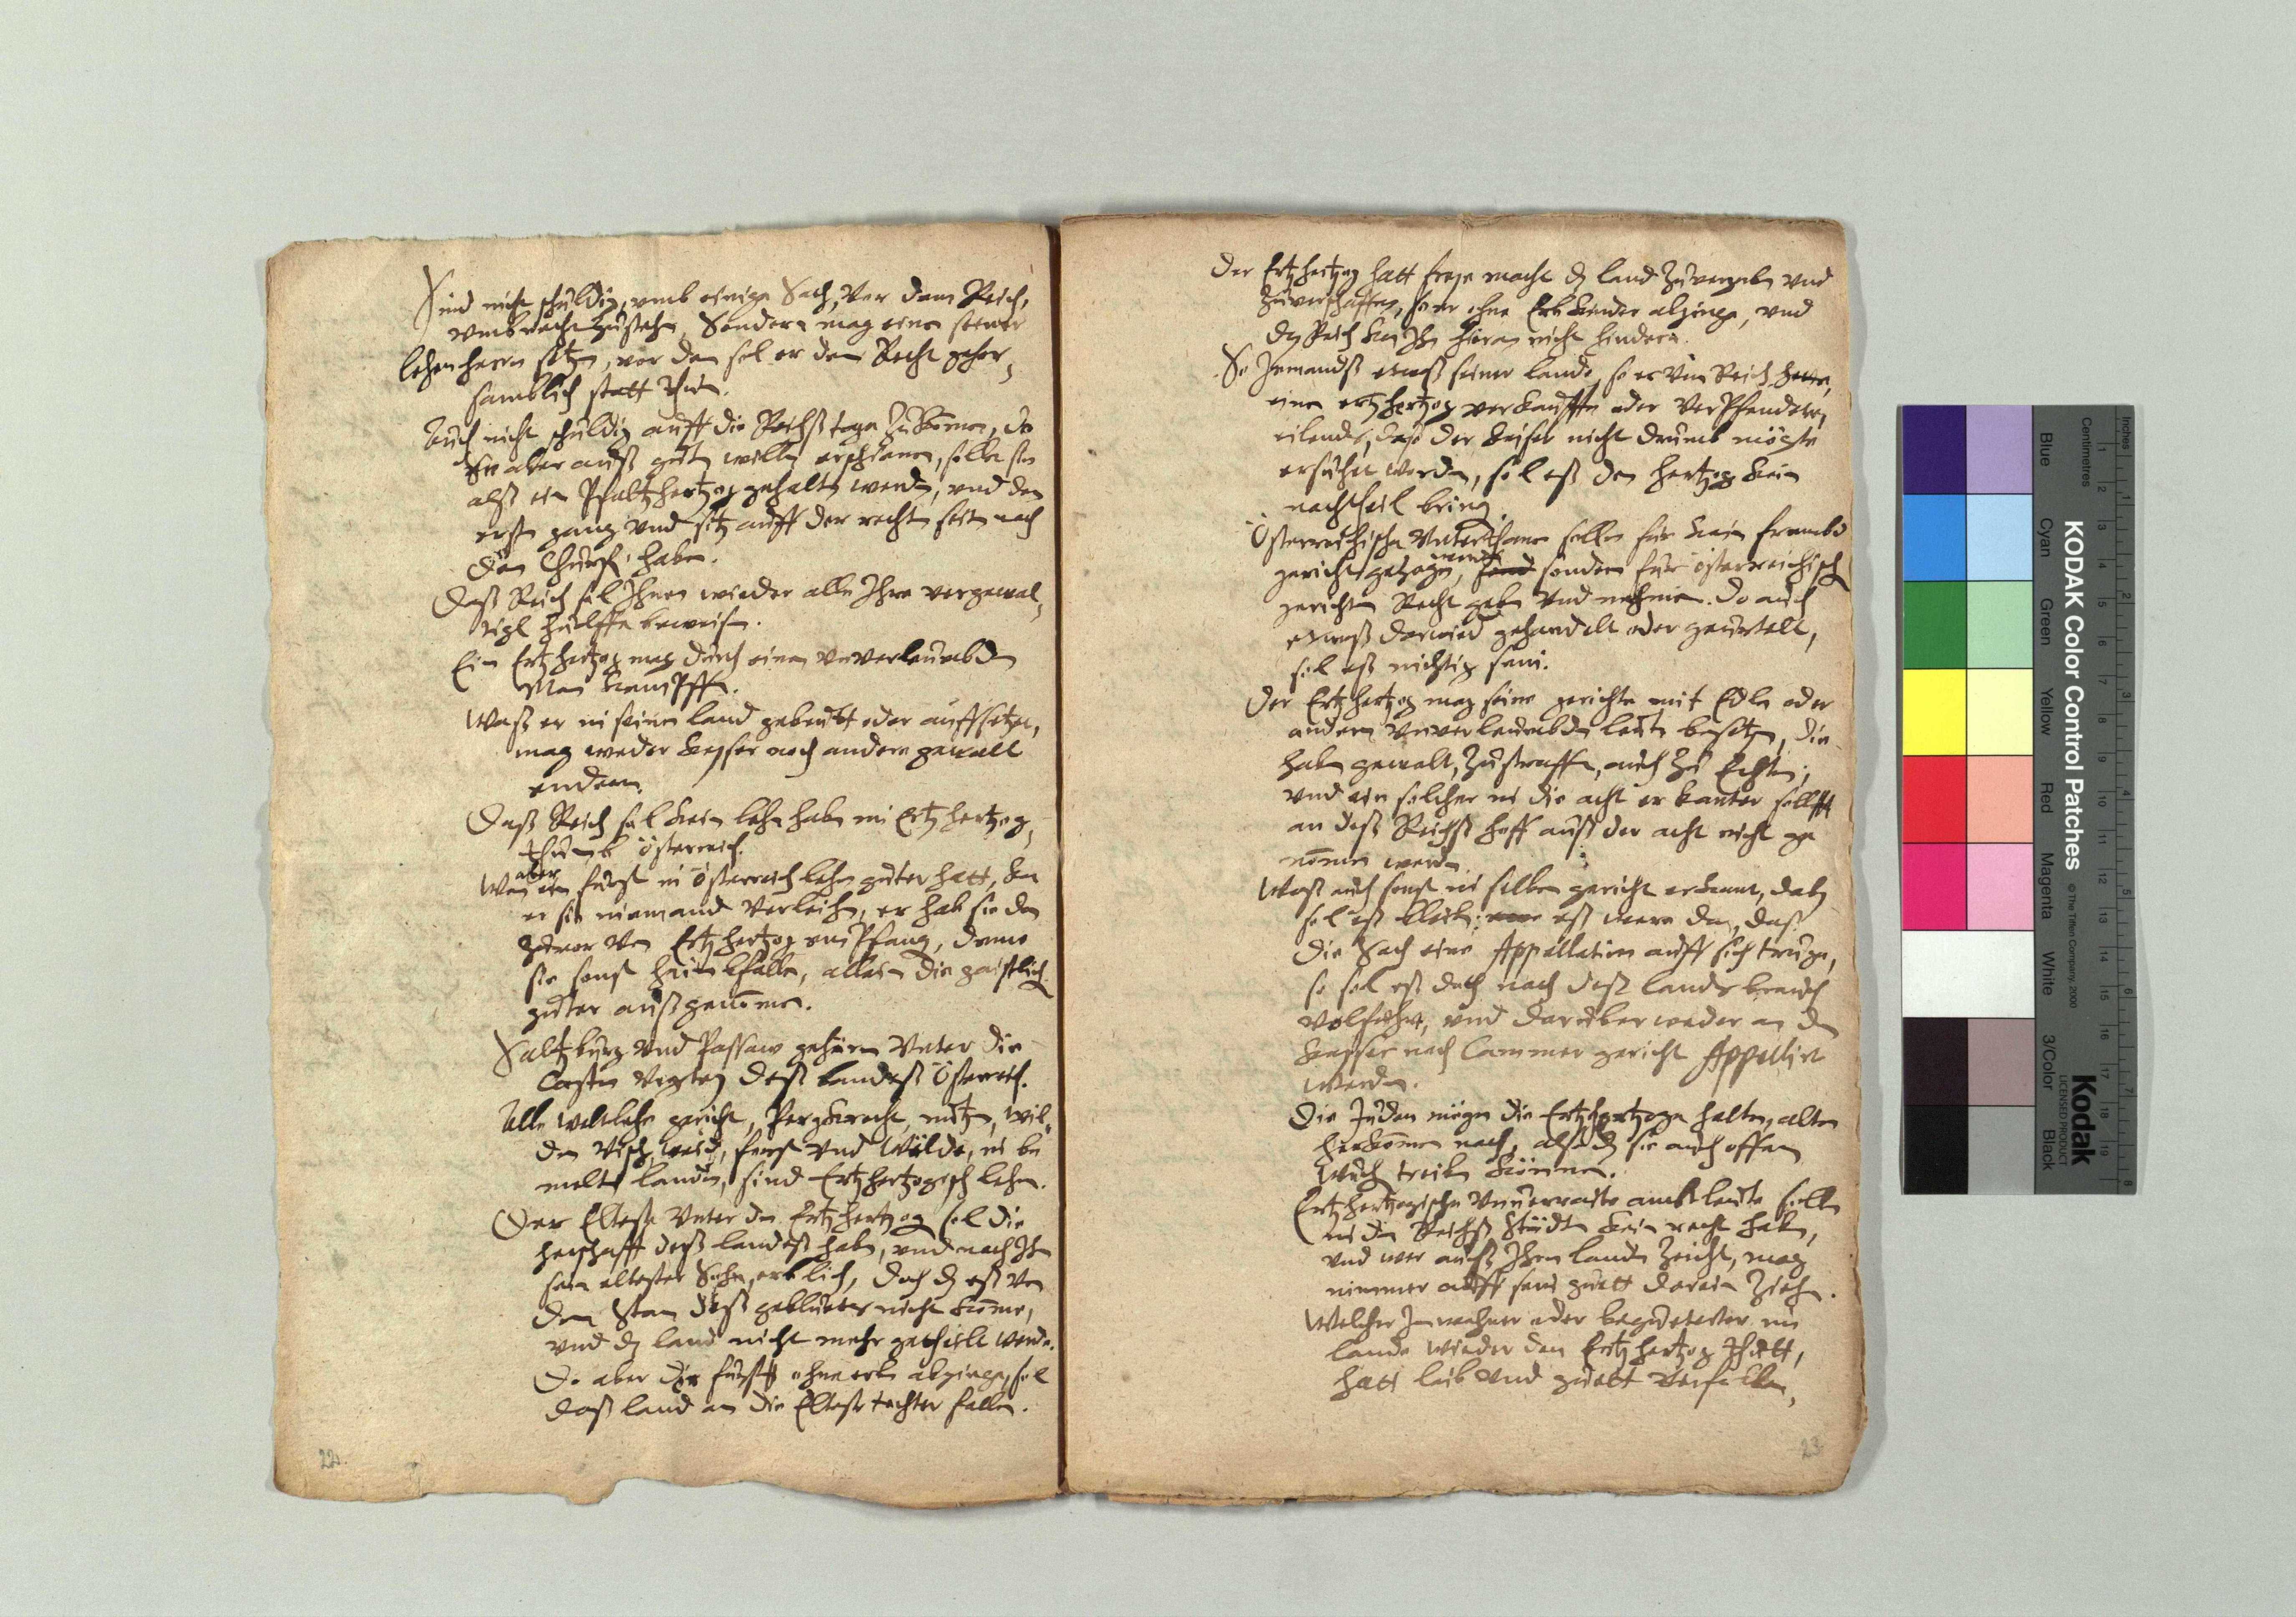 Sind nicht schuldig, umb einige Sach, Vor dem Reich,
umbrecht zustehn, Sondern mag einen seiner
lehenherrn setzen, vor dem sol er dem Recht gehor,
samblich statt thun.
Auch nicht schuldig auff die Reichstage zukomen, do
Er aber auß guten willen erschienen, sollen sie
alß ein Pfaltzhertzog gehalten werden, und den
ersten gang und sitz auff der rechten seiten nach
den Churf: haben.
Daß Reich sol Ihnen wieder alle Ihre vergewal,
tiger hulffe beweisen.
Ein Ertzhertzog mag durch einen unverleumbden
Man kempffen.
Waß er in seinen land gebeutt oder auffsetzet,
mag weder Keyser noch andere gewalt
endern.
Daß Reich sol kein lehn haben im Ertzhertzog,
thumb Österreich.
Wan aber ein furst in Österreich lehn guter hatt, kan
er sie niemand Verleihen, er hab sie dan
zuvor von Ertzhertzog empfang, denn
sie sonst heimbfallen, allein die geistlich
guter außgenomen.
Saltzburg und Passaw gehören Unter die
Casten Vogtey deß landeß Österreich.
Alle weltliche gericht, Pergkrecht nutz, wil,
den Visch, weid, forst und Wälde, in be
melten landen, sind Ertzhertzogisch lehn.
Der Elteste Unter den Ertzhertzog sol die
herschafft deß landeß haben, und nach Ihm
sein eltester Sohn, erblich, doch dz eß von
dem Stam deß gebluetes nicht kome,
und dz land nicht mehr getheilt werde.
Do aber die fursten ohne erben abginge, sol
daß land an die Elteste tochter fallen.
22.
Der Ertzhertzog hatt freye macht dz land zuvergeben und
zuverschaffen, so er ohne Erb kinder abginge, und
dz Reich kan Ihn hieran nicht hindern.
So Jemandß etwaß seiner lande, so er vom Reich hette,
einen ertzhertzog verkauffen oder verPfendete,
eilends, daß der Keiser nicht drumb möchte
ersucht werden, sol eß den hertzog kein
nachtheil bringen.
Österreichische Unterthanen sollen für kein frembd
gericht gezogen werden, sond sondern für österreichisch
gerichten Recht geben und nehmen. Do auch
etwaß darwied gehandelt oder geurtelt,
sol eß nichtig sein.
Der Ertzhertzog mag seine gerichte mit Edlen oder
andern Unverleumbden leuten besetzen, die
haben gewalt, zustraffen, auch zu Echten,
und ein solcher in die acht erkanter sollst
an deß Reichß hoff auß der acht nicht ge
nomen werden.
Waß auch sonst in selben gericht erkennt, dabey
sol eß bleiben: eß were dan, daß
die Sach eine Appellation auff sich truge,
so sol eß doch nach deß lands brauch
volfuhrt, und darüber weder an den
Keyser noch Cammer gericht Appellirt
werden.
Die Juden mögen die Ertzhertzoge halten, alten
herkomen nach, alß dz sie auch offen
wuch treiben können.
Ertzhertzogische amb leute sollen
in den Reichs Städten kein recht haben,
und wer auß Ihren landen zeicht, mag
nimmer auff sein guett darein ziehen.
Welcher Innwohner oder begueteter im
lande wieder den Ertzhertzog thuett,
hatt leib und guett verfallen,
23